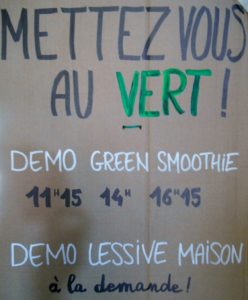 METTEZ VOUS
AU VERT !
DEMO GREEN SMOOTHIE
11"15 14" 16"15
DEMO LESSIVE MAISON
à la demande !